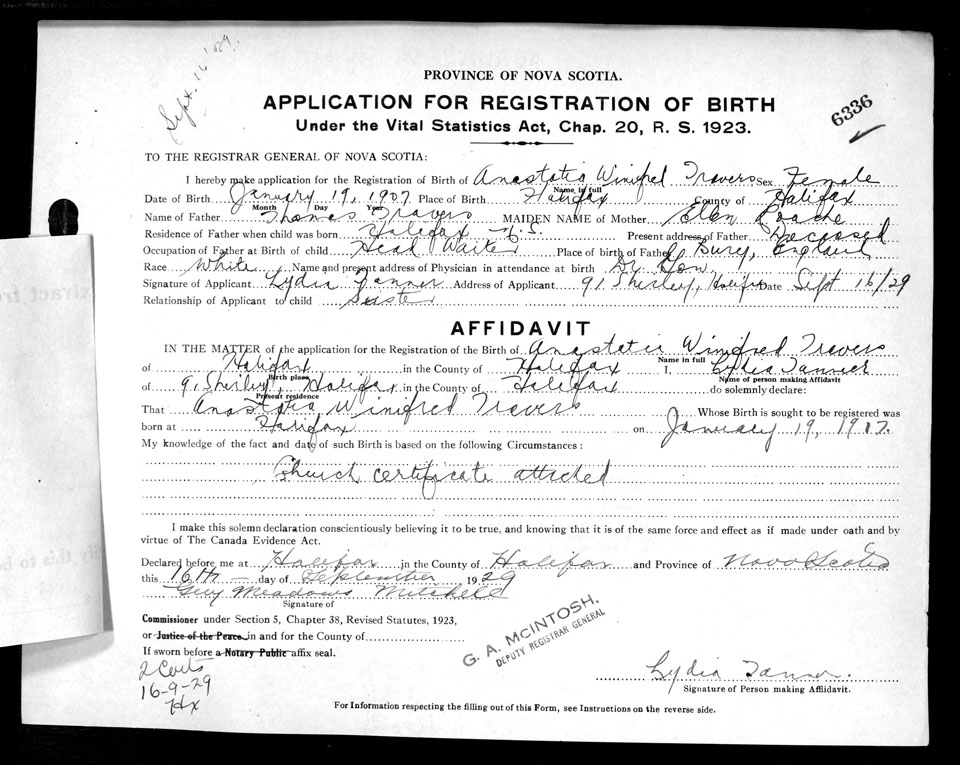 Sept. 16 '29.
PROVINCE OF NOVA SCOTIA.
APPLICATION FOR REGISTRATION OF BIRTH
6336
Under the Vital Statistics Act, Chap. 20, R. S. 1923.
TO THE REGISTRAR GENERAL OF NOVA SCOTIA:
I hereby make application for the Registration of Birth of Anastatia Winifred Travers Sex Female
Name in full
Date of Birth January 19, 1907 Place of Birth Halifax County of Halifax
Month Day Year
Name of Father Thomas Travers MAIDEN NAME of Mother Ellen Roache
Residence of Father when child was born Halifax N.S. Present address of Father Deceased
Occupation of Father at Birth of child Head Waiter Place of birth of Father Bury, England
Race White Name and present address of Physician in attendance at birth Dr
Signature of Applicant Lydia Tanner Address of Applicant 91 Shirley, Halifax Date Sept 16/29
Relationship of Applicant to child Sister
AFFIDAVIT
IN THE MATTER of the application for the Registration of the Birth of Anastatia Winifred Travers
Name in full
of Halifax in the County of Halifax I, Lydia Tanner
Birth place Name of person making Affidavit
of 91 Shirley, Halifax in the County of Halifax do solemnly declare:
Present residence
That Anastatia Winifred Travers Whose Birth is sought to be registered was
born at Halifax on January 19, 1907.
My knowledge of the fact and date of such Birth is based on the following Circumstances:
Church certificate attached
I make this solemn declaration conscientiously believing it to be true, and knowing that it is of the same force and effect as if made under oath and by
virtue of The Canada Evidence Act.
Declared before me at Halifax in the County of Halifax and Province of Nova Scotia
this 16th day of September 1929
Guy Meadows Mitchell
Signature of
Commissioner under Section 5, Chapter 38, Revised Statutes, 1923,
or Justice of the Peace in and for the County of
If sworn before a Notary Public affix seal.
G. A. MCINTOSH,
DEPUTY REGISTRAR GENERAL
2 Certs
16-9-29
Hx
Lydia Tanner.
Signature of Person making Affidavit.
For Information respecting the filling out of this Form, see Instructions on the reverse side.